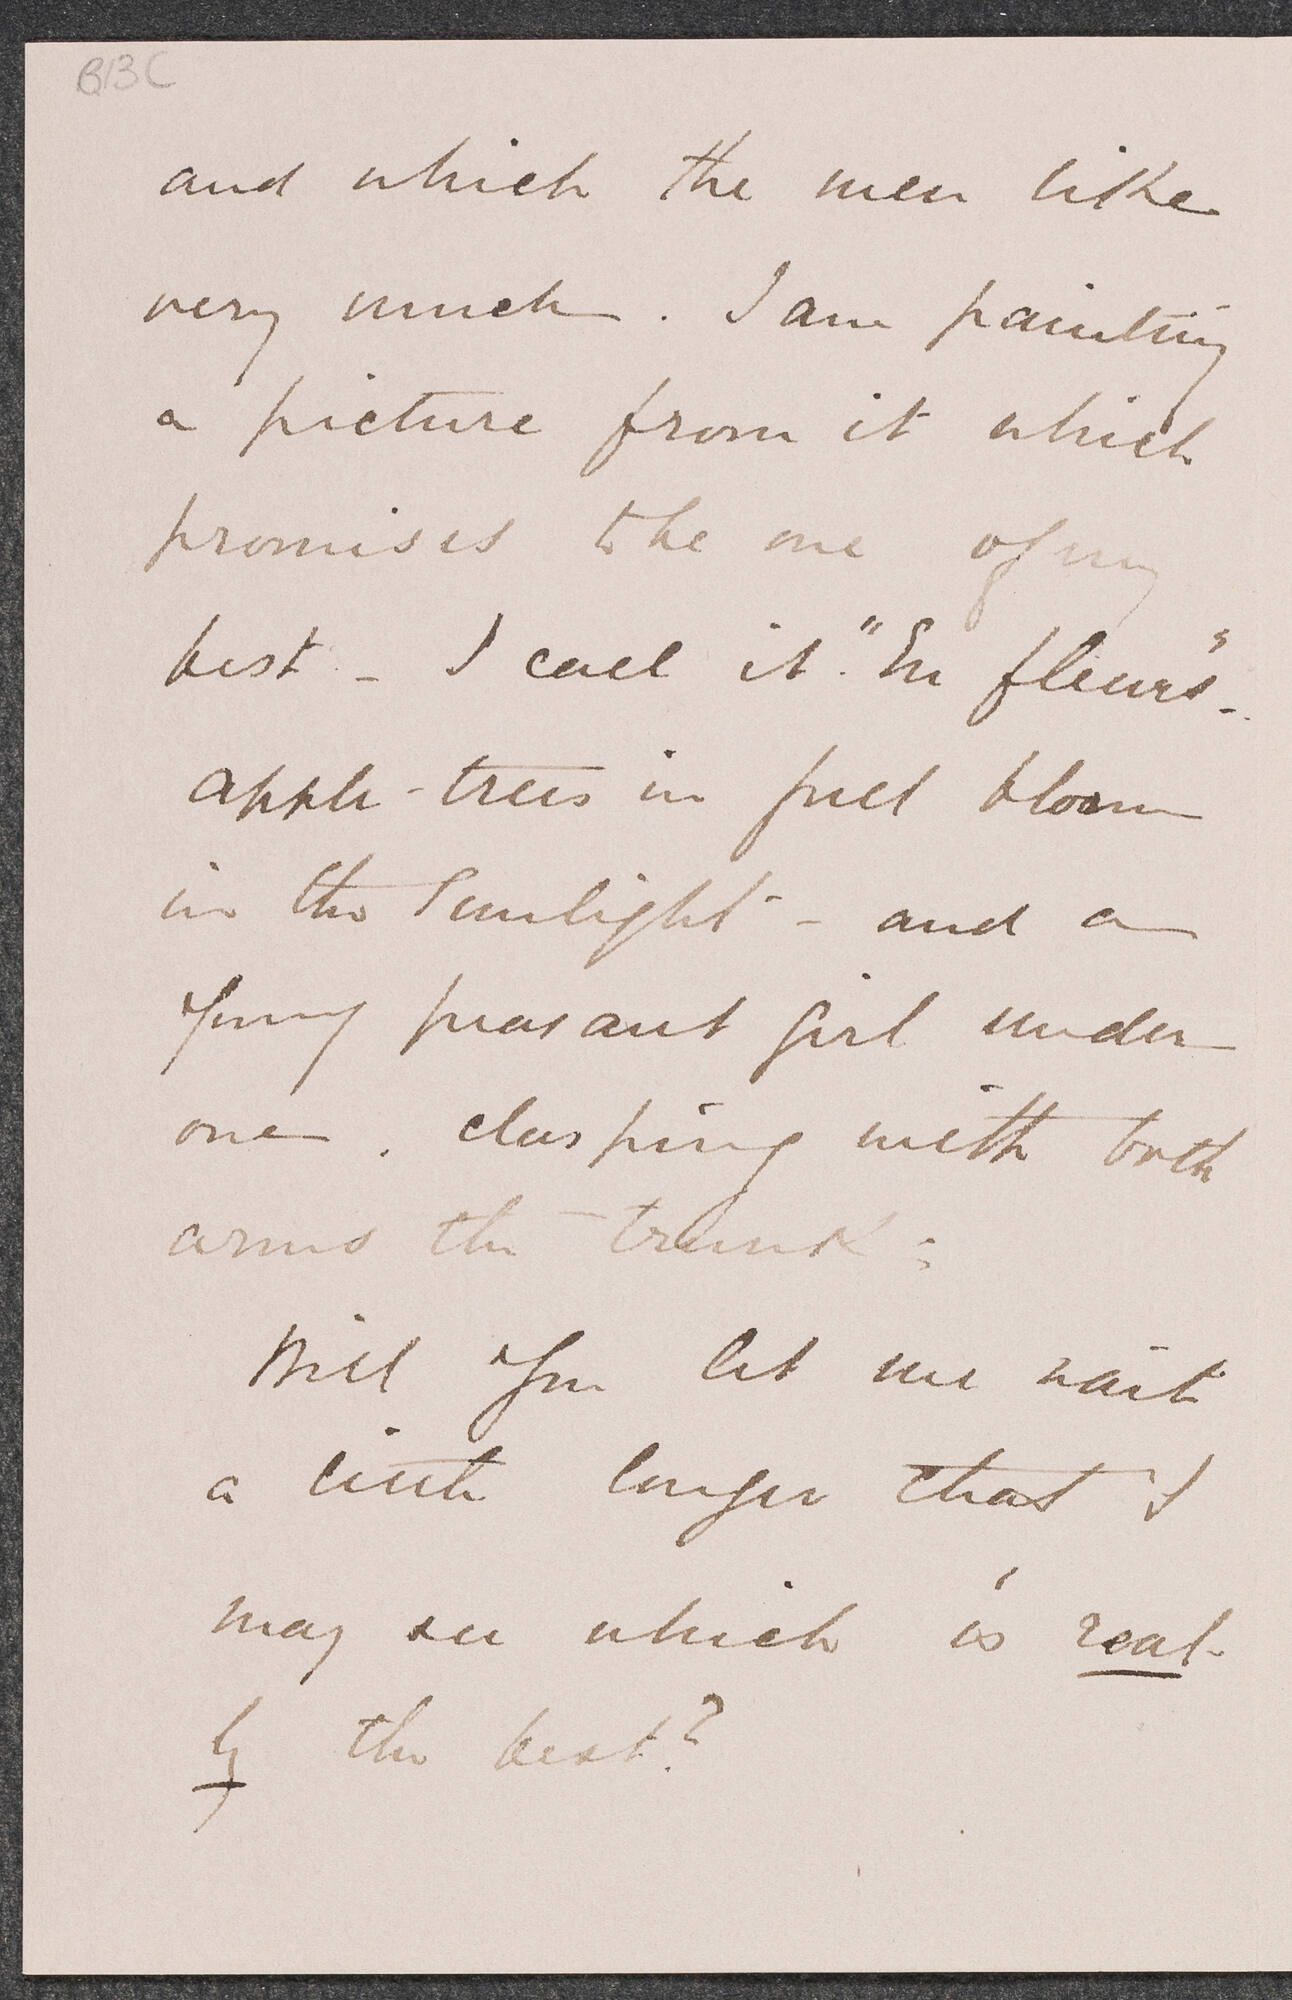 B13C
and which the men like
very much. I am painting
a picture from it which
promises to be one of my
best - I call it "En fleurs" -
apple-trees in full bloom
in the sunlight - and a
young peasant girl under
one, clasping with both
arms the trunk;
Will you let me wait
a little longer that I
may see which is real-
ly the best?